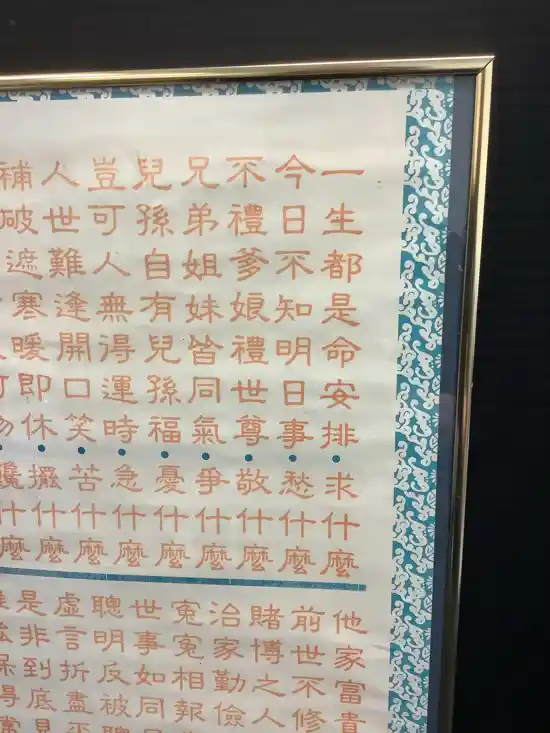 一生都是命安排•求什麼
今日不知明日事•愁什麼
不禮爹娘禮世尊•敬什麼
兄弟姐妹皆同氣•爭什麼
兒孫自有兒孫福•憂什麼
豈可人無得運時•急什麼
人世難逢開口笑•苦什麼
補破遮寒暖即休•擺什麼
什麼
他家富貴
前世不修
賭博之人
治家勤儉
冤冤相報
世事如同
聰明反被聰
虛言折盡平
是非到底見